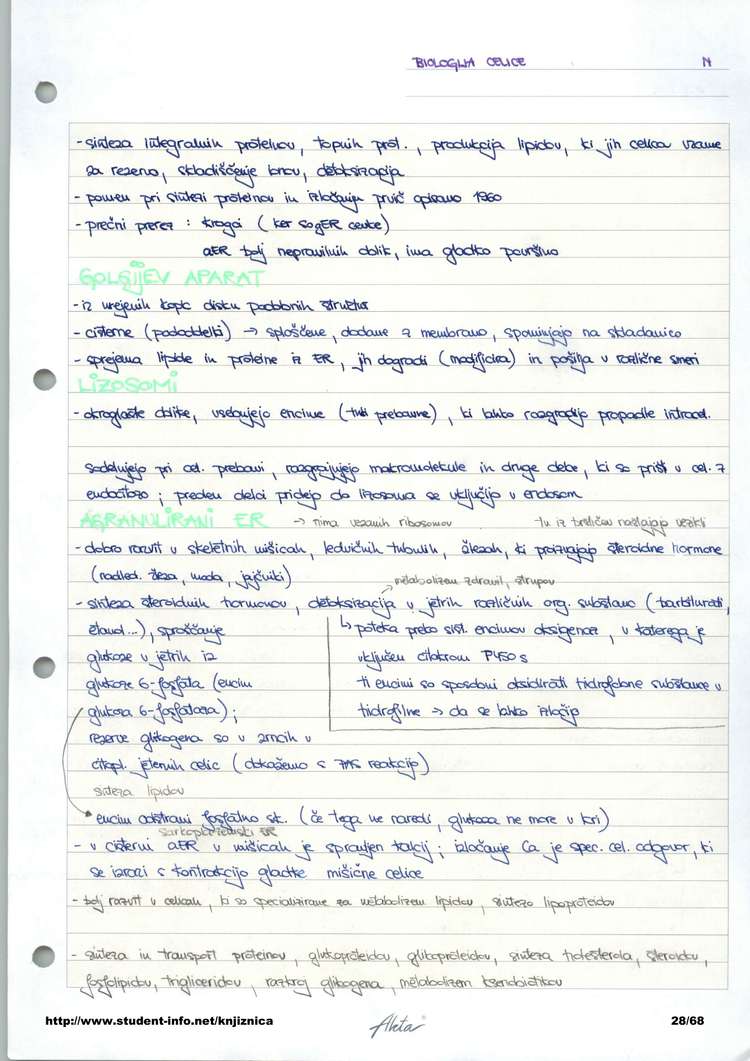 BIOLOGIJA CELICE N
- sinteza integralnih proteinov, topnih prot., produkcija lipidov, ki jih celica vzame
za rezervo, skladiščenje snov, detoksizacija
- pomen pri sintezi proteinov in izločanju prvič opisano 1960
- prečni prerez: krogci (ker so gER cevke)
aER bolj nepravilnih oblik, ima gladko površino
GOLGIJEV APARAT
- iz urejenih kopic disku podobnih struktur
- cisterne (pododdelki) → sploščene, obdane z membrano, spominjajo na skladanico
- sprejema lipide in proteine iz ER, jih dogradi (modificira) in pošilja v različne smeri
LIZOSOMI
- okroglaste oblike, vsebujejo encime (tudi prebavne), ki lahko razgradijo propadle intracel.
Sodelujejo pri cel. prebavi, razgrajujejo makromolekule in druge delce, ki so prišli v cel. z
endocitozo; preden delci pridejo do lizosoma se vključijo v endosom
AGRANULIRANI ER → nima vezanih ribosomov tu iz brstičev nastajajo vezikli
- dobro razvit v skeletnih mišicah, ledvičnih tubulih, žlezah, ki proizvajajo steroidne hormone
(nadled. žleza, moda, jajčniki)
metabolizem zdravil, strupov
- sinteza steroidnih hormonov, detoksizacija v jetrih različnih org. substanc (barbiturati,
etanol...), sproščanje
↳ poteka preko sist. encimov oksigenaz, v katerega je
glukoze v jetrih iz
vključen citokrom P450 s
glukoze 6-fosfata (encim
ti encimi so sposobni oksidirati hidrofobne substance v
glukoza 6-fosfataza);
hidrofilne → da se lahko izločijo
rezerve glikogena so v zrncih v
citopl. jetrnih celic (dokažemo s PAS reakcijo)
sinteza lipidov
encim odstrani fosfatno sk. (če tega ne naredi, glukoza ne more v kri)
sarkoplazemski ER
- v cisterni aER v mišicah je spravljen kalcij; izločanje Ca je spec. cel. odgovor, ki
se izrazi s kontrakcijo gladke mišične celice
- bolj razvit v celicah, ki so specializirane za metabolizem lipidov, sintezo lipoproteidov
- sinteza in transport proteinov, glukoproteidov, glikoproteidov, sinteza holesterola, steroidov,
fosfolipidov, trigliceridov, razkroj glikogena, metabolizem ksenobiotikov
http://www.student-info.net/knjiznica Aleta 28/68